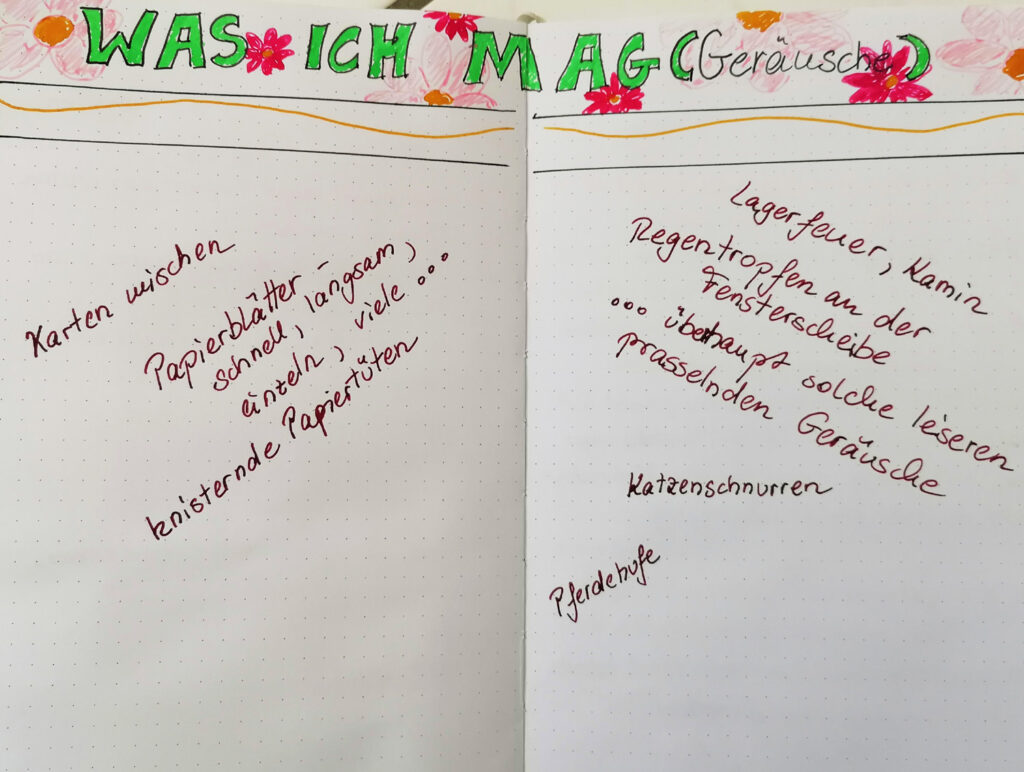 WAS ICH MAG (Geräusche)
Karten mischen
Papierblätter -
schnell, langsam,
einzeln, viele ...
knisternde Papiertüten
Lagerfeuer, Kamin
Regentropfen an der
Fensterscheibe
... überhaupt solche leiseren
prasselnden Geräusche
Katzenschnurren
Pferdehufe